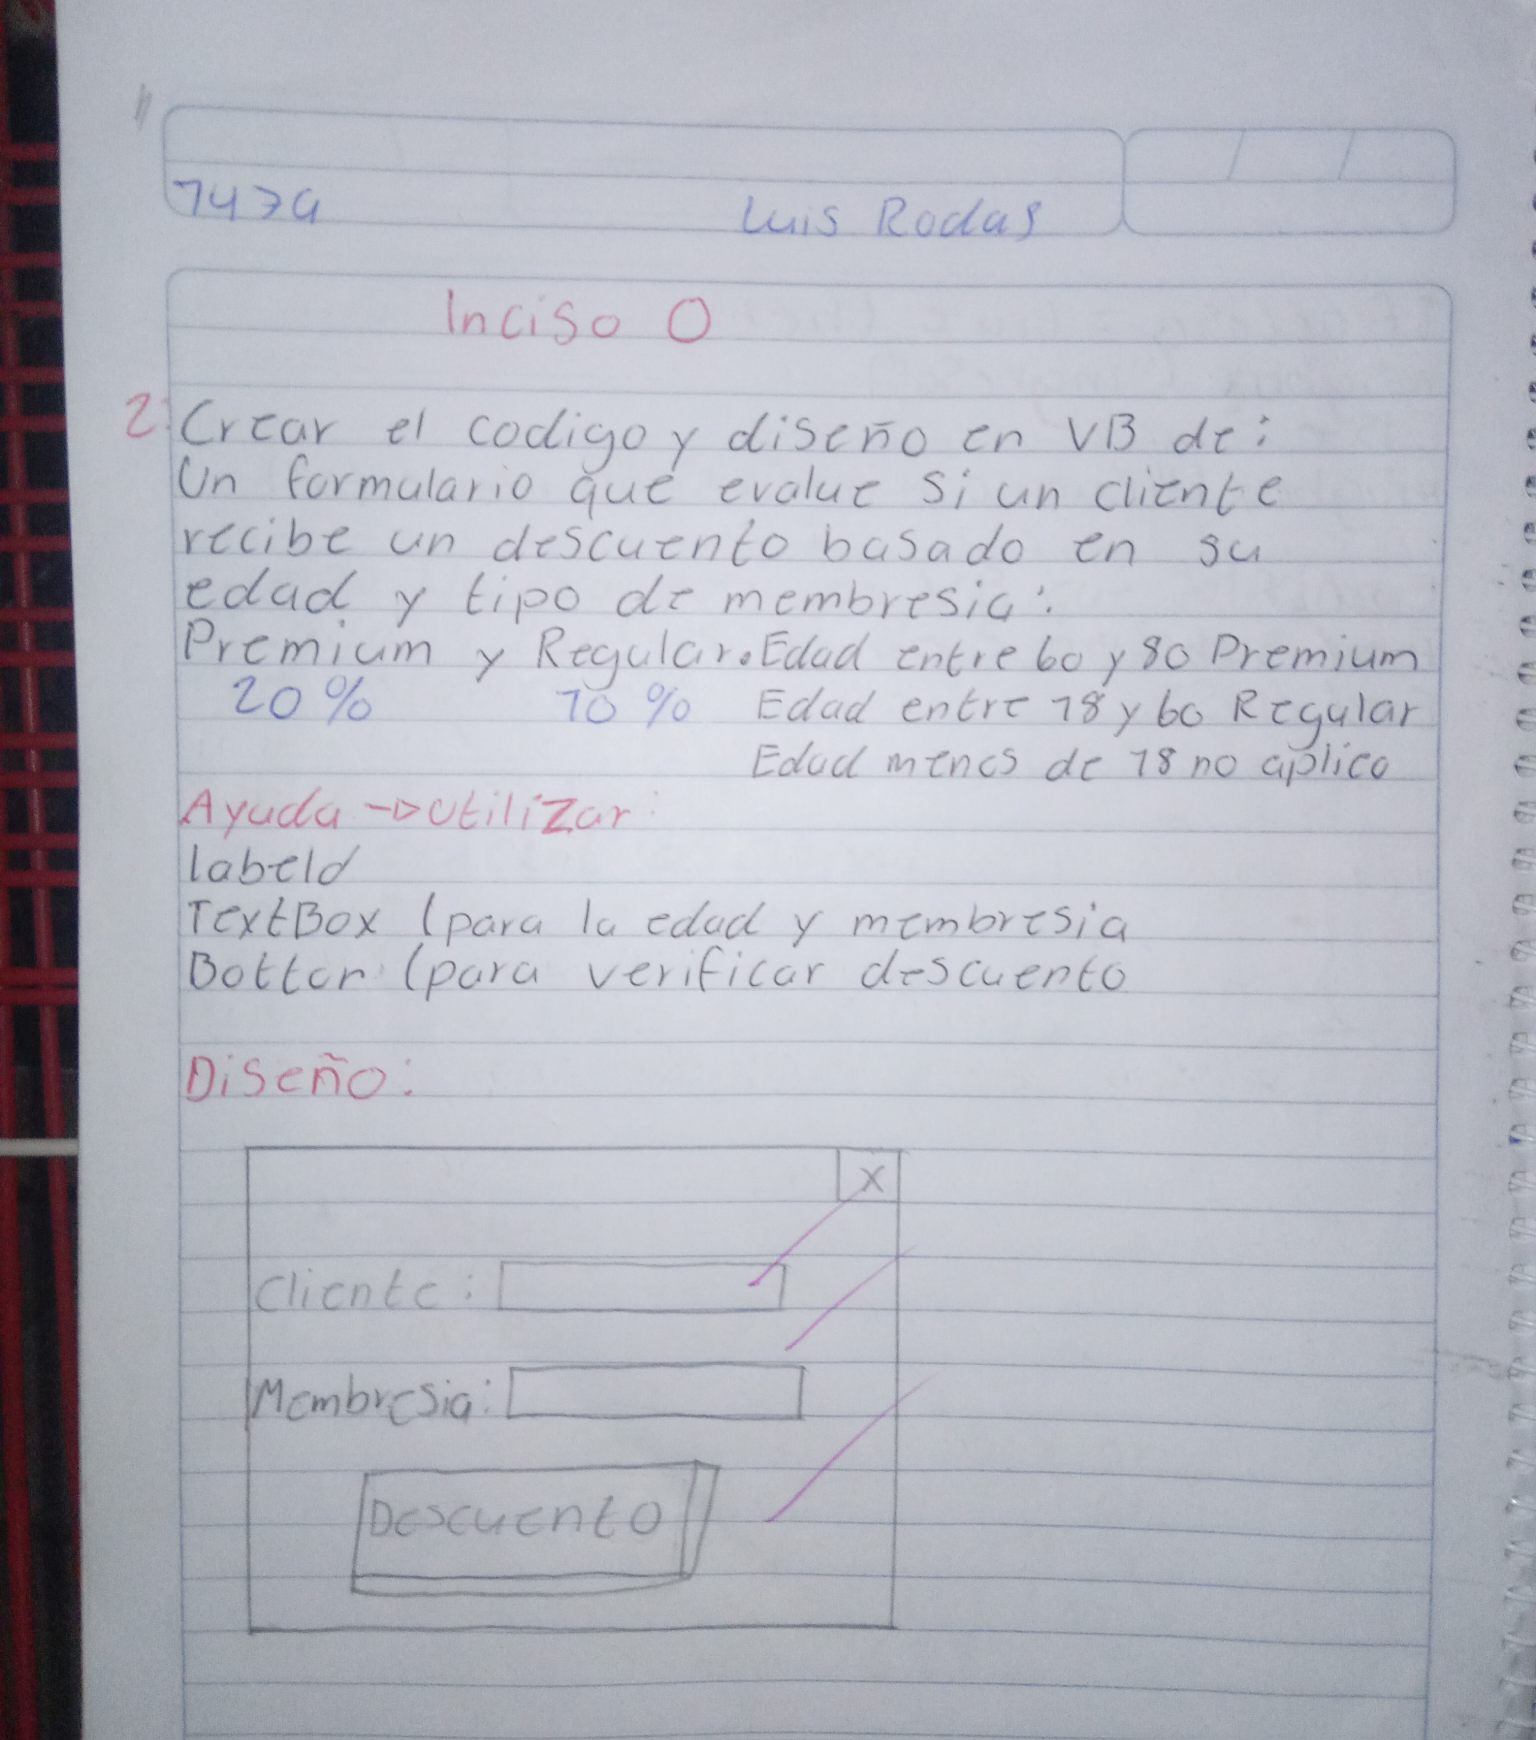 7474 Luis Rodas
Inciso O
2. Crear el codigo y diseño en VB de:
Un formulario que evalue si un cliente
recibe un descuento basado en su
edad y tipo de membresia:
Premium y Regular. Edad entre 60 y 80 Premium
20% 10% Edad entre 18 y 60 Regular
Edad menos de 18 no aplica
Ayuda → Utilizar:
labeld
TextBox (para la edad y membresia
Botton (para verificar descuento
Diseño:
X
Cliente:
Membresia:
Descuento